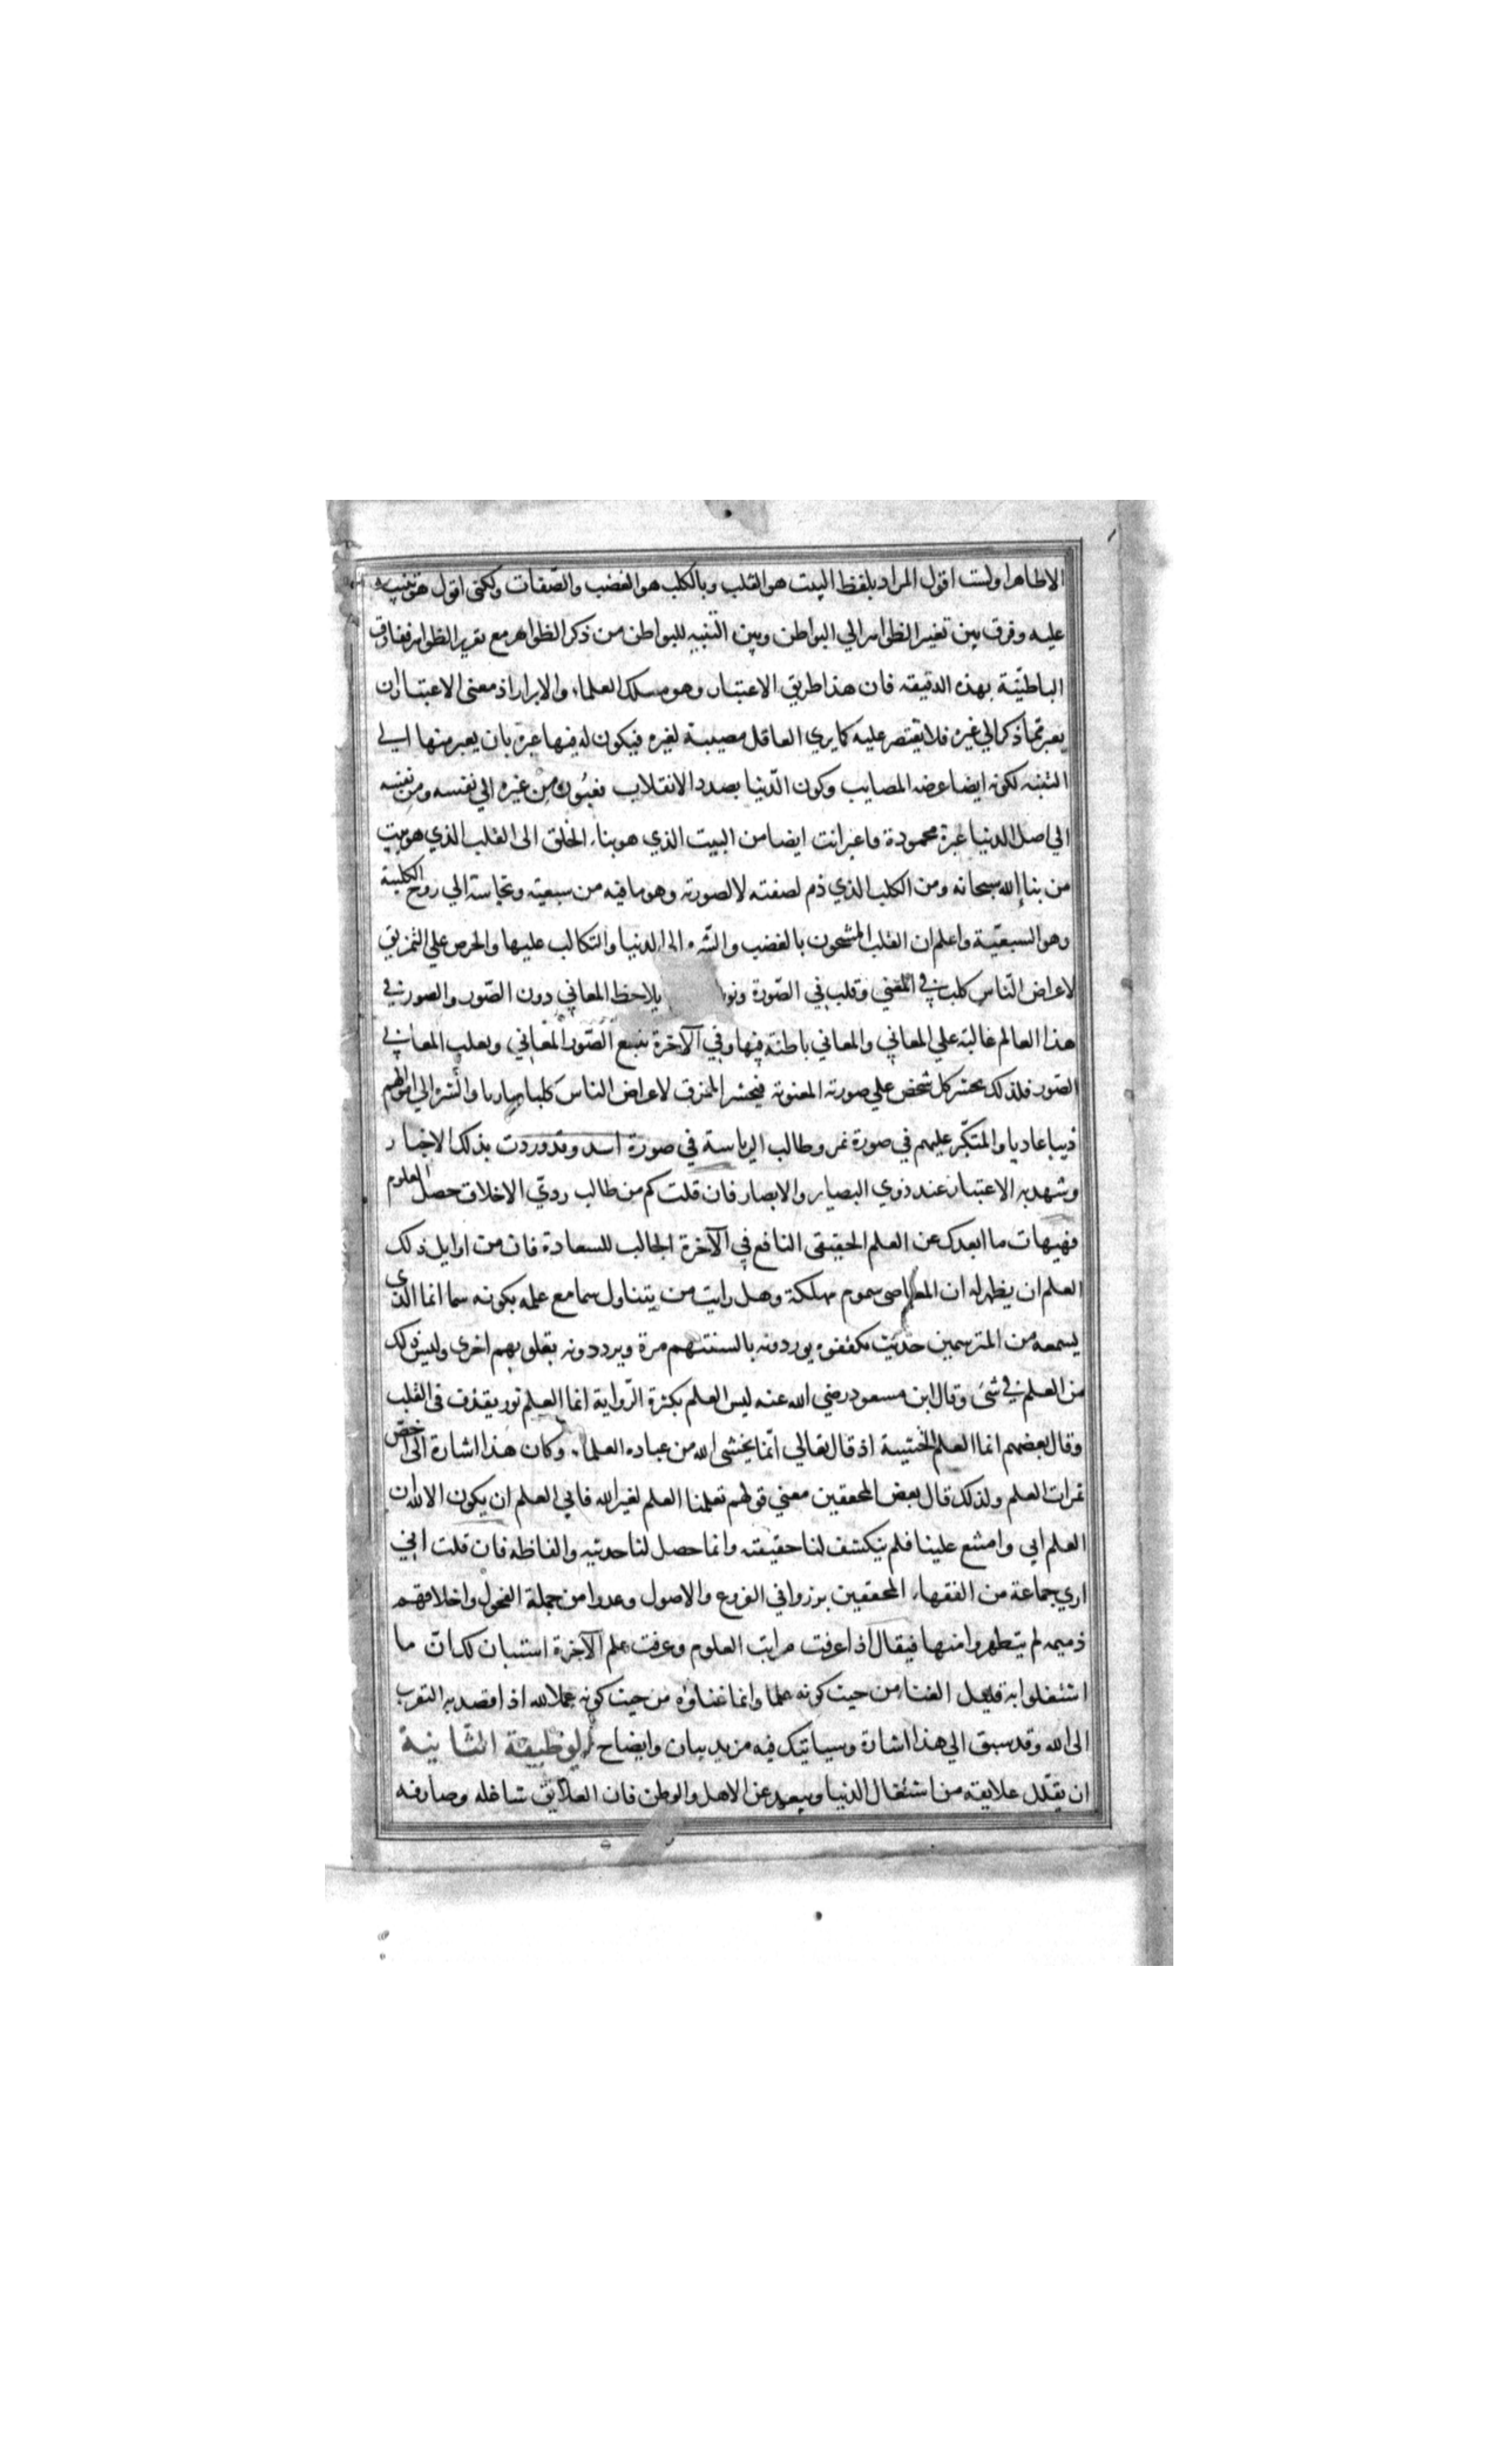 الاطاهرا ولست اقول المراد بلفظ البيت هو القلب وبالكلب هو الغضب والصّفات ولكنّى اقول هو تنبيه
عليه وفرق بين تغيير الظواهر الي البواطن وبين التنبيه للبواطن من ذكر الظواهر مع تقرير الظواهر ففارق
الباطنيّة بهذه الدقيقه فان هذا طريق الاعتبار وهو مسلك العلماء والابرار اذ معنى الاعتبار ان
يعبر مما ذكر الي غيره فلا يقتصر عليه كما يري العاقل مصيبة لغيره فيكون له فيها عبرة بان يعبر منها الي
التنبه لكونه ايضا عرضه المصايب وكون الدّنيا بصدد الانقلاب فعبوره من غيره الي نفسه ومن نفسه
الي اصل الدنيا عبرة محمودة فاعبر انت ايضا من البيت الذي هو بناء الخلق الى القلب الذي هو بيت
من بناء الله سبحانه ومن الكلب الذي ذم لصفته لا لصورته وهو ما فيه من سبعيته ونجاسته الي روح الكلبية
وهو السبعيّة واعلم ان القلب المشحون بالغضب والشره الى الدنيا والتكالب عليها والحرص علي التمزيق
لاعراض النّاس كلب في المعني وقلب في الصّورة ونور يلاحظ المعاني دون الصّور والصور في
هذا العالم غالبة علي المعاني والمعاني باطنة فيها وفي الآخرة تتبع الصّور المعاني ويغلب المعاني
الصّور فلذلك يحشر كل شخص علي صورته المعنوية فيحشر الممزق لاعراض الناس كلبا ضاريا والشره الي اموالهم
ذيبا عاديا والمتكبّر عليهم في صورة نمر وطالب الرياسة في صورة اسد وقد وردت بذلك الاخبار
وشهد به الاعتبار عند ذوي البصاير والابصار فان قلت كم من طالب رديّ الاخلاق حصل العلوم
فهيهات ما ابعدك عن العلم الحقيقى النافع في الآخرة الجالب للسعادة فان من اوايل ذلك
العلم ان يظهر له ان المعاصى سموم مهلكة وهل رايت من يتناول سما مع علمه بكونه سما انما الذي
يسمعه من المترسمين حديث يوردونه بالسنتهم مرة ويرددونه بقلوبهم اخرى وليس ذلك
من العلم في شئ وقال ابن مسعود رضي الله عنه ليس العلم بكثرة الرّواية انما العلم نور يقذف فى القلب
وقال بعضهم انما العلم الخشية اذ قال تعالي انّما يخشى الله من عباده العلماء وكان هذا اشارة الى اخصّ
ثمرات العلم ولذلك قال بعض المحققين معني قولهم تعلمنا العلم لغير الله فابي العلم ان يكون الا لله ان
العلم ابي وامتنع علينا فلم ينكشف لنا حقيقته وانما حصل لنا حديثه والفاظه فان قلت انّي
اري جماعة من الفقهاء المحققين برزوا في الفروع والاصول وعدوا من جملة الفحول واخلاقهم
ذميمه لم يتطهروا منها فيقال اذا عرفت مراتب العلوم وعرفت علم الآخرة استبان لك انّ ما
اشتغلوا به قليل الغنا من حيث كونه علما وانما غناؤه من حيث كونه عملا لله اذا قصد به التقرب
الى الله وقد سبق الي هذا اشارة وسياتيك فيه مزيد بيان وايضاح الوظيفة الثّانية
ان يقلّل علايقه من اشتغال الدّنيا ويبعد عن الاهل والوطن فان العلايق شاغله وصارفه